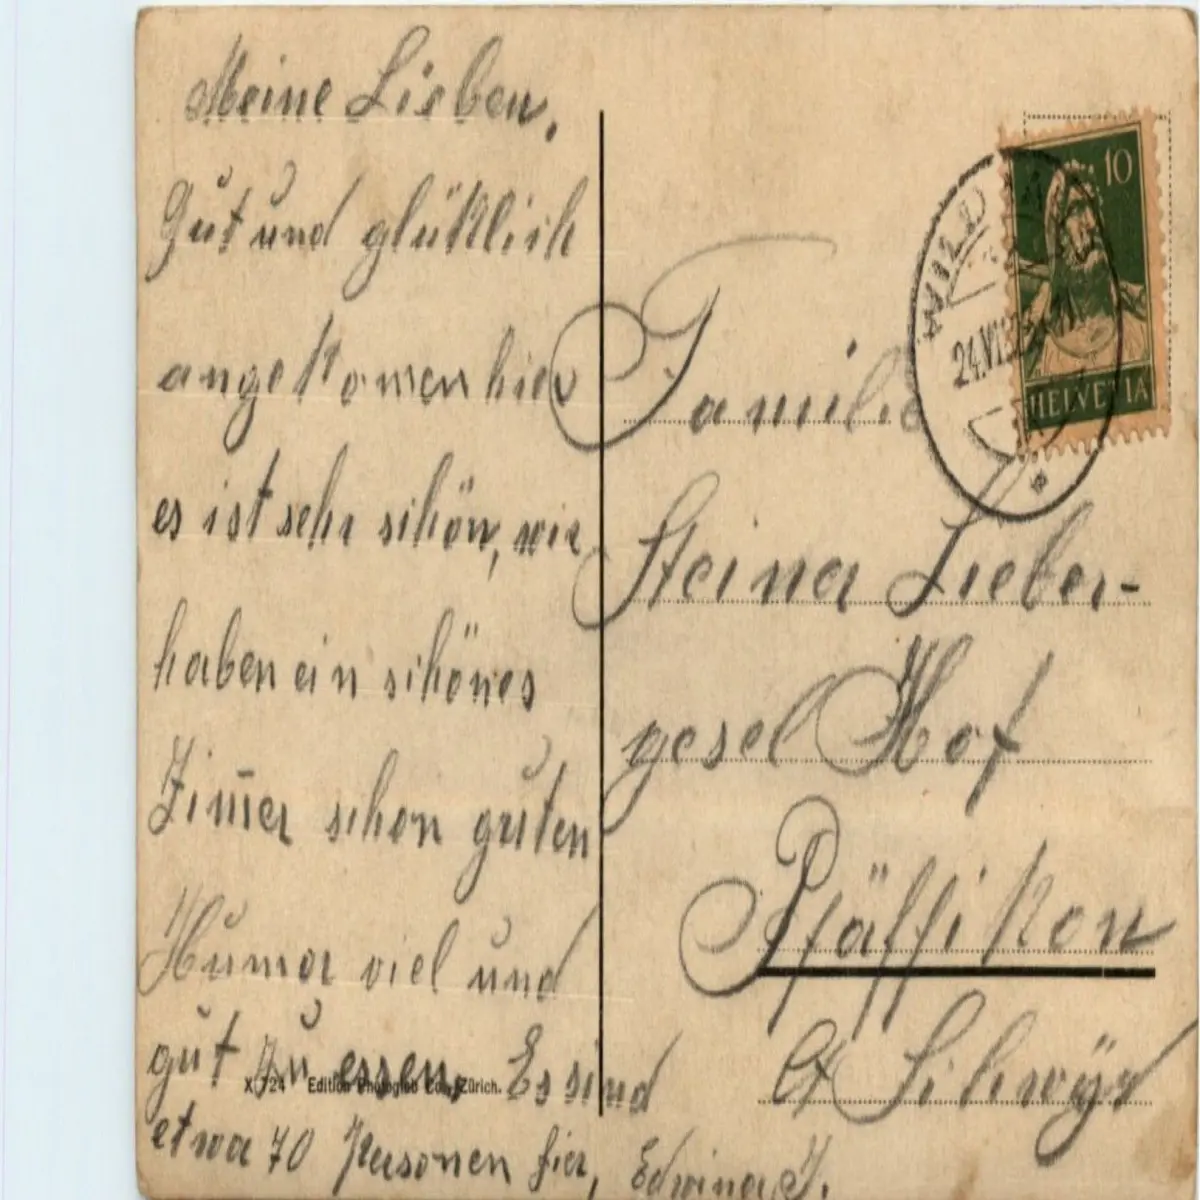 Meine Lieben,
Gut und glüklich
angekomen hier
es ist sehr schön, wir
haben ein schönes
Zim̄er schon guten
Humor viel und
gut zu essen, Es sind
etwa 70 Personen hier,
X 724 Edition Photoglob Co., Zürich.
10
HELVETIA
24.VI.
Familie
Steiner Lieber-
gesel Hof
Pfäffikon
Ct Schwÿz